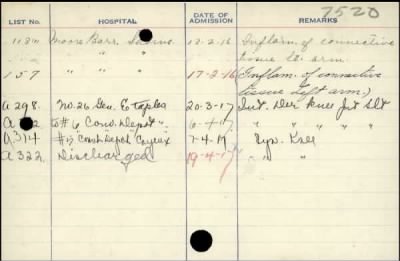 7520
LIST NO. HOSPITAL DATE OF ADMISSION REMARKS
Moore Barr. 13-2-16 Inflam of connective
" " " tissue Lt arm.
157 " " " 17-2-16 (Inflam. of connective
tissue left arm.)
a 298. No. 26 Gen. Etaples 20-3-17 Int. Der. Knee Jnt Slt
to #6 Conv. Depot " 6-4-17 " " " "
a 314 #5 Conv. Depot Cayeux 7-4-17 Syn. Knee
a 322 Discharged 19-4-17 " "